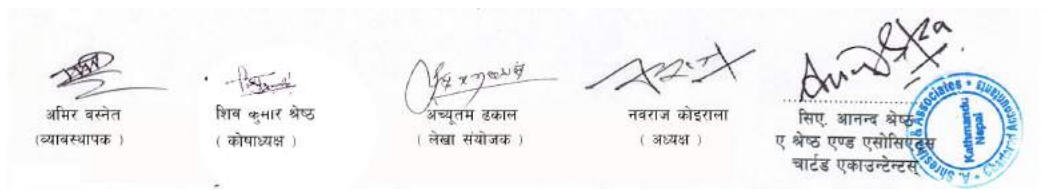 अमिर बस्नेत
(व्यावस्थापक )
शिव कुमार श्रेष्ठ
( कोषाध्यक्ष )
अच्यूतम ढकाल
( लेखा संयोजक )
नवराज कोइराला
( अध्यक्ष )
सिए. आनन्द श्रेष्ठ
ए श्रेष्ठ एण्ड एसोसिएट्स
चार्टड एकाउन्टेन्टस्
A. Shrestha & Associates
Kathmandu
Nepal